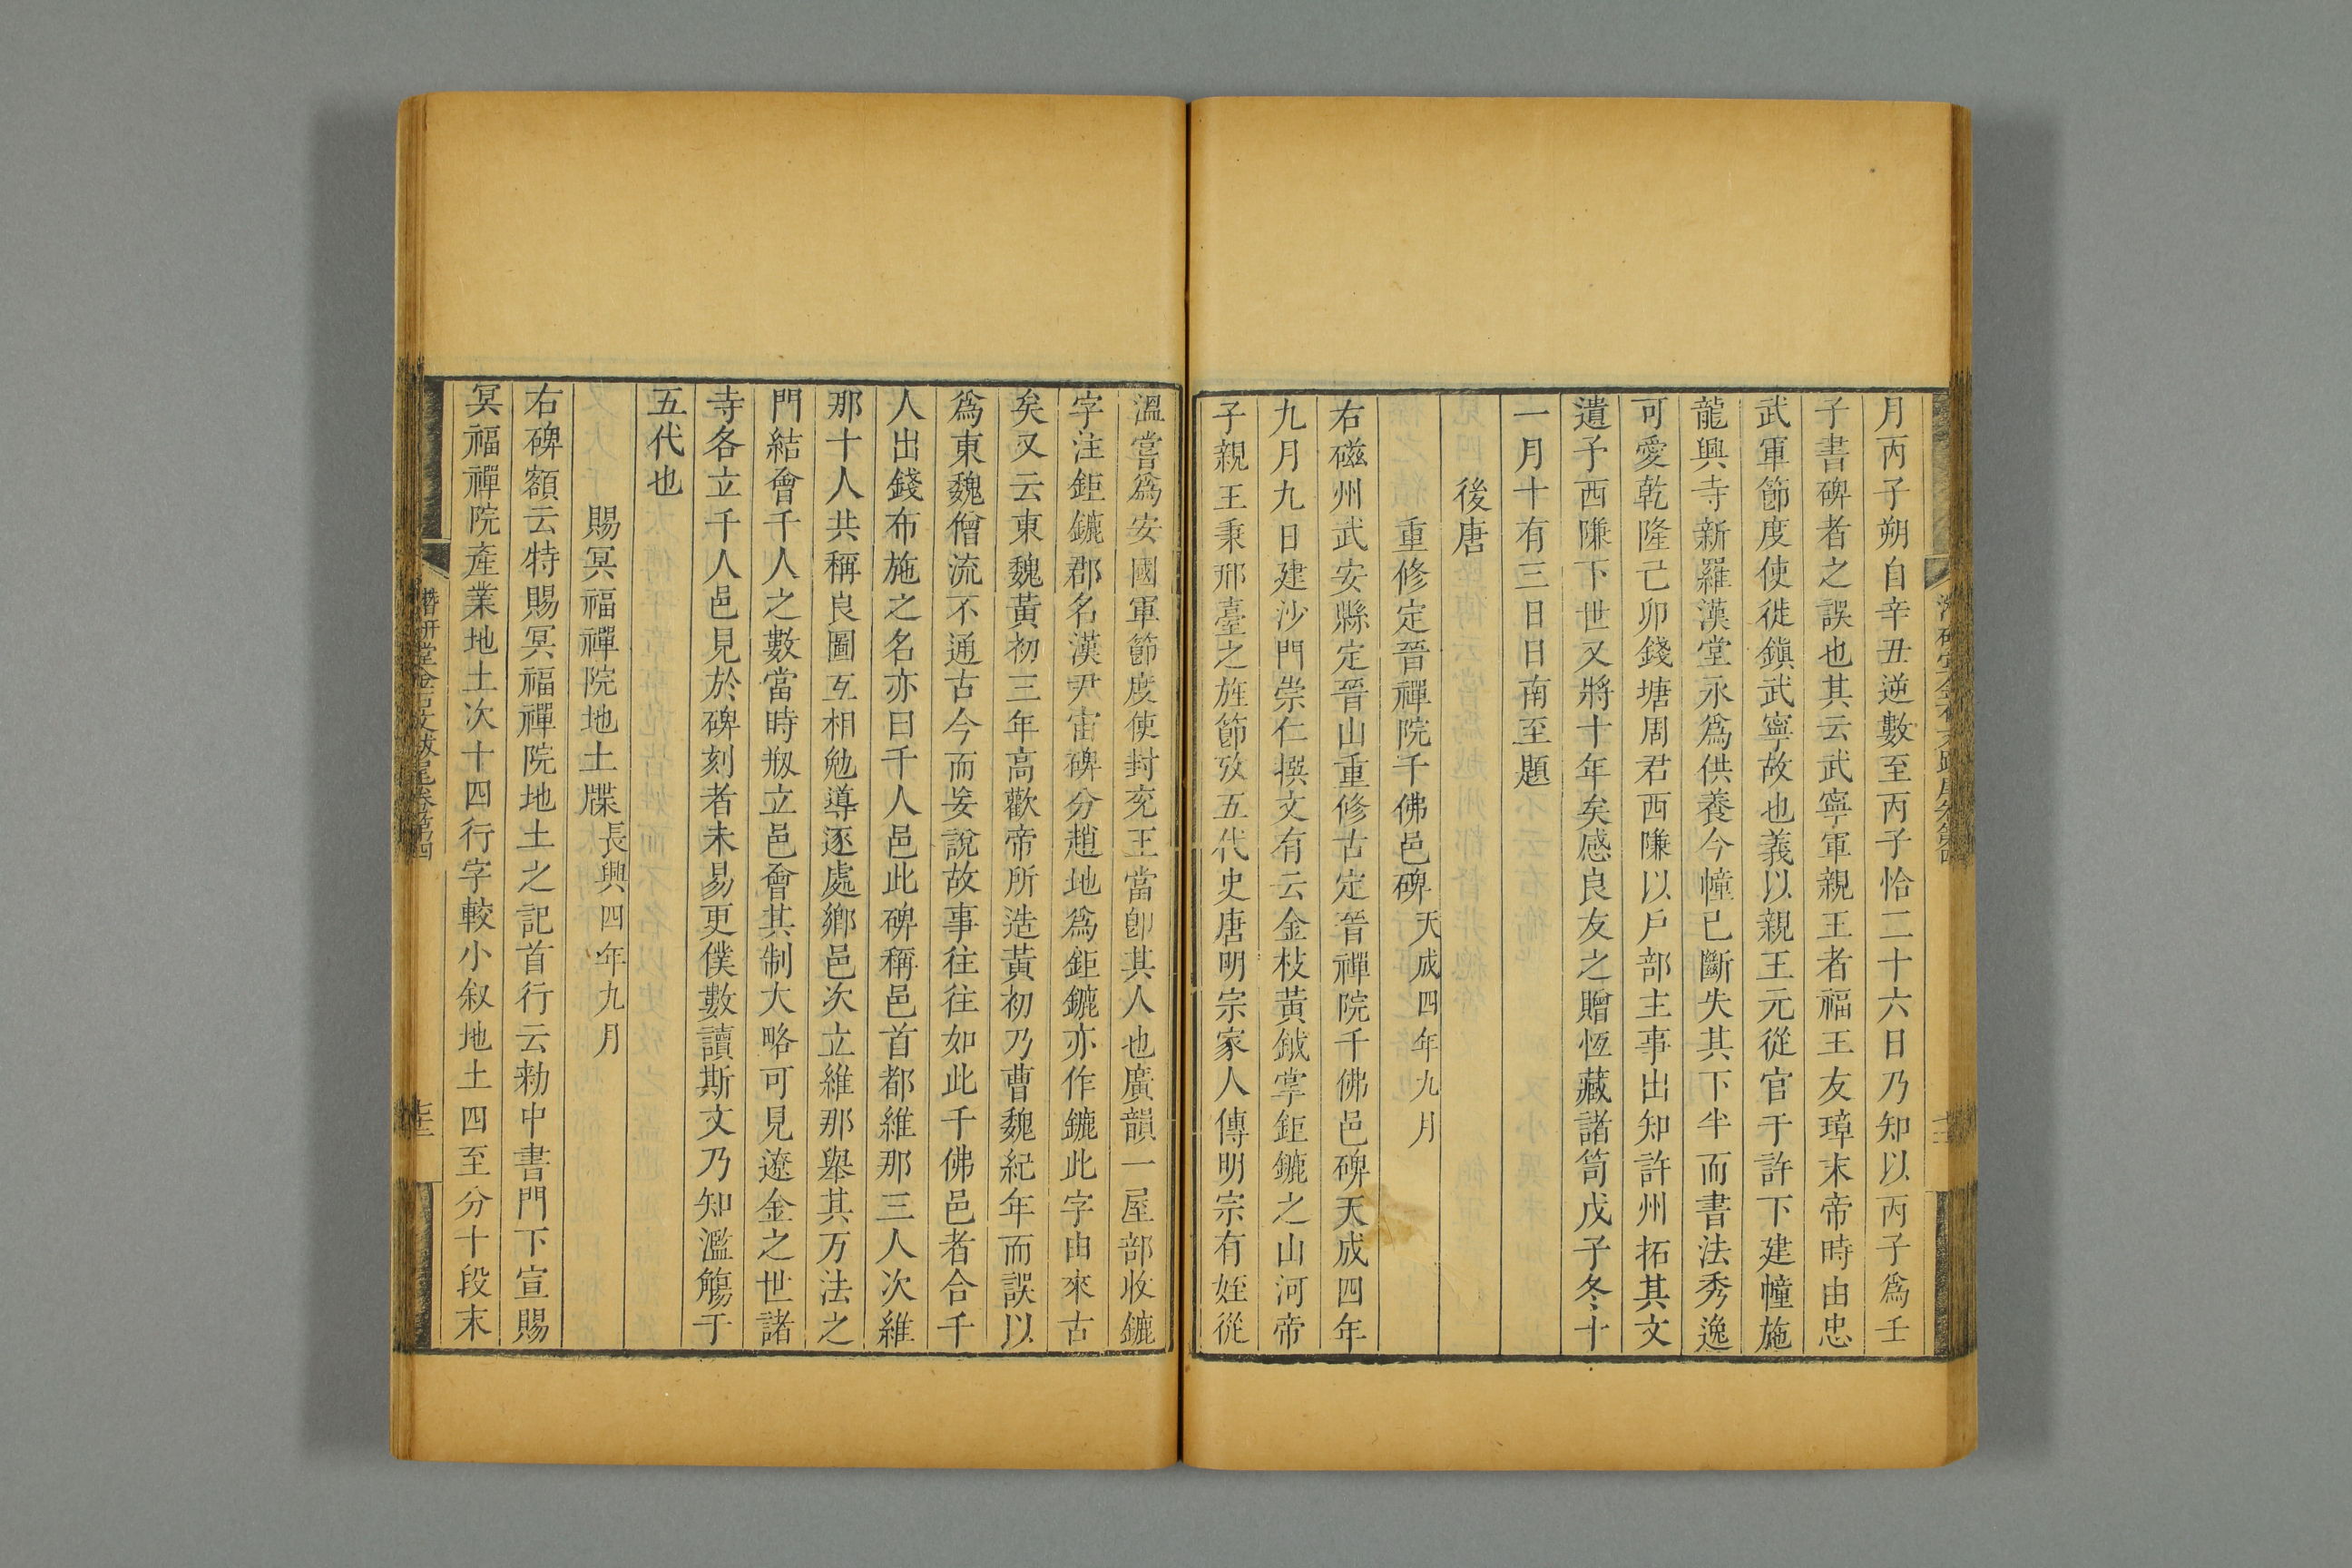 月丙子朔自辛丑逆數至丙子恰二十六日乃知以丙子爲壬
子書碑者之誤也其云武寧軍親王者福王友璋末帝時由忠
武軍節度使徙鎭武寧故也義以親王元從官于許下建幢施
龍興寺新羅漢堂永爲供養今幢已斷失其下半而書法秀逸
可愛乾隆己卯錢塘周君西隒以戶部主事出知許州拓其文
遺予西隒下世又將十年矣感良友之贈恆藏諸笥戊子冬十
一月十有三日日南至題
後唐
重修定晉禪院千佛邑碑天成四年九月
右磁州武安縣定晉山重修古定晉禪院千佛邑碑天成四年
九月九日建沙門崇仁撰文有云金枝黃鉞掌鉅鑣之山河帝
子親王秉邢臺之旌節攷五代史唐明宗家人傳明宗有姪從
溫嘗爲安國軍節度使封兗王當卽其人也廣韻一屋部收鑣
字注鉅鑣郡名漢尹宙碑分趙地爲鉅鑣亦作鑣此字由來古
矣又云東魏黃初三年高歡帝所造黃初乃曹魏紀年而誤以
爲東魏僧流不通古今而妄說故事往往如此千佛邑者合千
人出錢布施之名亦曰千人邑此碑稱邑首都維那三人次維
那十人共稱良圖互相勉導逐處鄉邑次立維那舉其万法之
門結會千人之數當時剏立邑會其制大略可見遼金之世諸
寺各立千人邑見於碑刻者未易更僕數讀斯文乃知濫觴于
五代也
賜冥福禪院地土牒長興四年九月
右碑額云特賜冥福禪院地土之記首行云勑中書門下宣賜
冥福禪院產業地土次十四行字較小叙地土四至分十段末
潛研堂金石文跋尾卷第四
十三